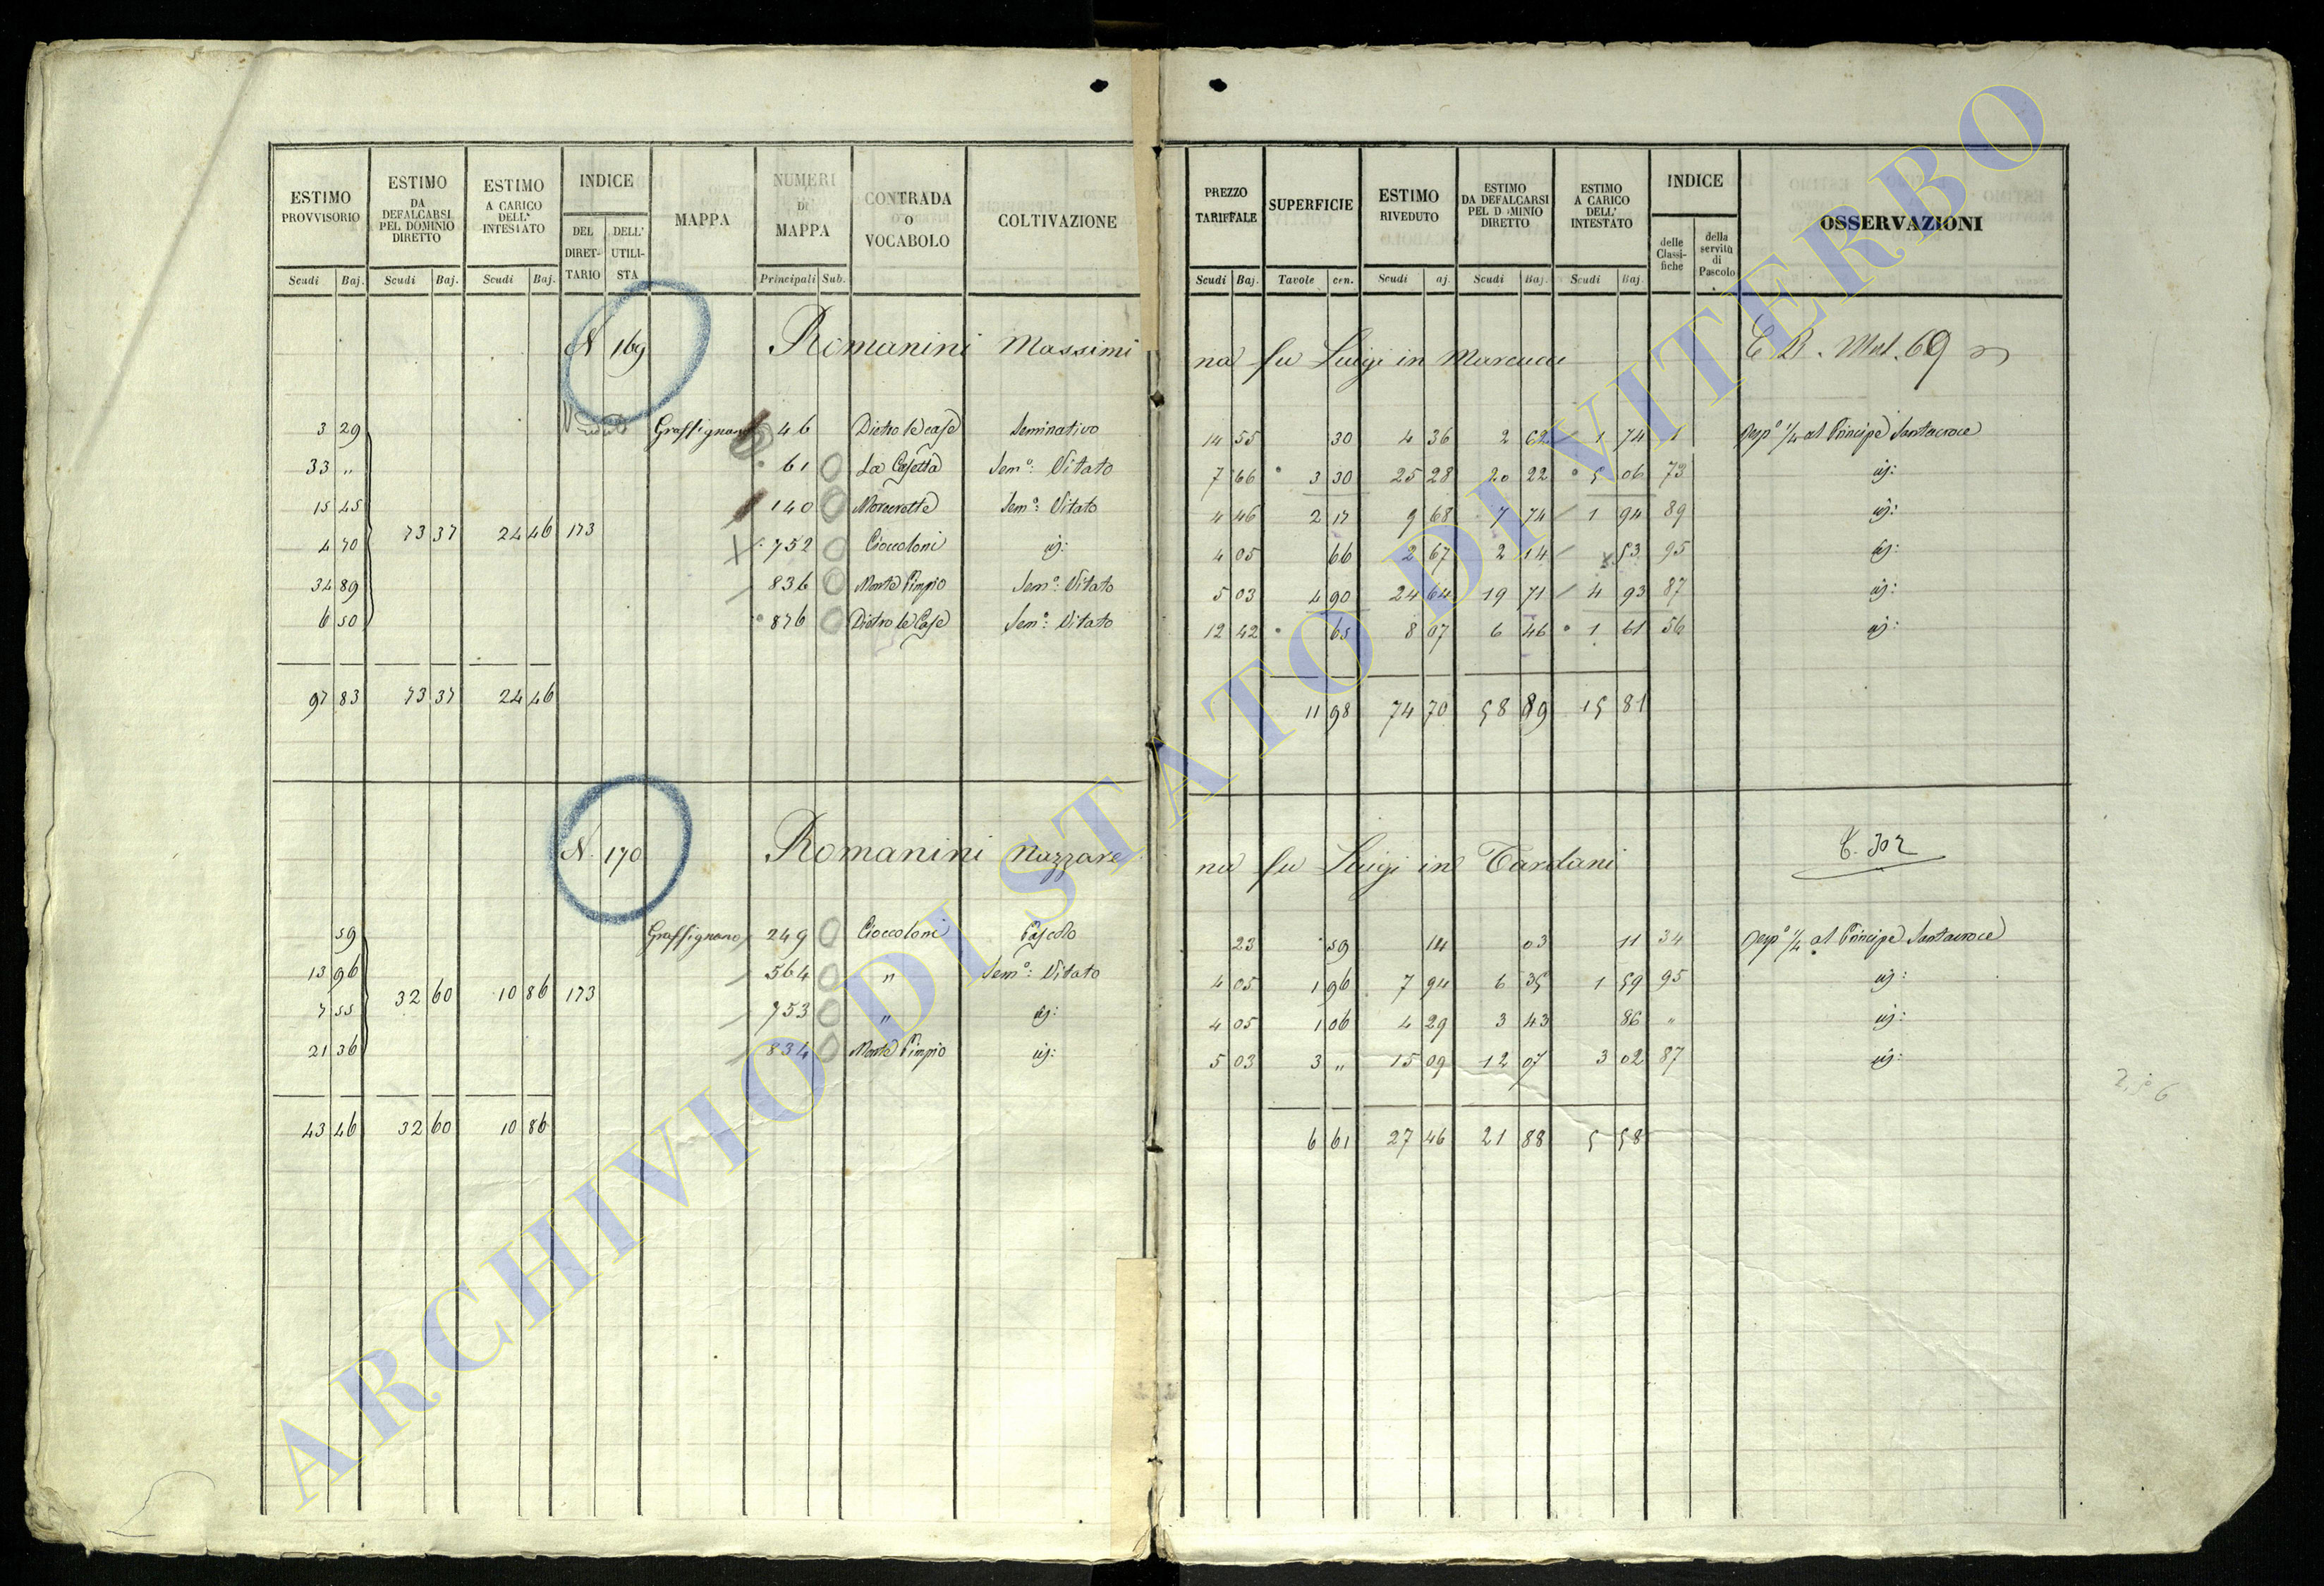 ESTIMO PROVVISORIO | ESTIMO DA DEFALCARSI PEL DOMINIO DIRETTO | ESTIMO A CARICO DELL' INTESTATO | INDICE | MAPPA | NUMERI DI MAPPA | CONTRADA O VOCABOLO | COLTIVAZIONE | PREZZO TARIFFALE | SUPERFICIE | ESTIMO RIVEDUTO | ESTIMO DA DEFALCARSI PEL DOMINIO DIRETTO | ESTIMO A CARICO DELL' INTESTATO | INDICE | OSSERVAZIONI
DEL DIRETTARIO | DELL' UTILISTA | delle Classifiche | della servitù di Pascolo
Scudi | Baj. | Scudi | Baj. | Scudi | Baj. | Principali | Sub. | Scudi | Baj. | Tavole | cen. | Scudi | aj. | Scudi | Baj. | Scudi | Baj.
N 169 Romanini Massimina fu Luigi in Marcucci
69
3 29 | Graffignano | 46 | Dietro le case | Seminativo | 14 55 | 30 | 4 36 | 2 62 | 1 74 | 1 | Resp° 1/4 al Principe Santacroce
33 " | 61 | La Casetta | Sem°: Vitato | 7 66 | 3 30 | 25 28 | 20 22 | 5 06 | 73 | id:
15 45 | 140 | Sem°: Vitato | 4 46 | 2 17 | 9 68 | 7 74 | 1 94 | 89 | id:
73 37 | 24 46 | 173
4 70 | 752 | Cioccoloni | id: | 4 05 | 66 | 2 67 | 2 14 | 53 | 95 | id:
34 89 | 836 | Monte Pimpio | Sem°: Vitato | 5 03 | 4 90 | 24 64 | 19 71 | 4 93 | 87 | id:
6 50 | 876 | Dietro le Case | Sem°: Vitato | 12 42 | 65 | 8 07 | 6 46 | 1 61 | 56 | id:
97 83 | 73 37 | 24 46 | 11 98 | 74 70 | 58 89 | 15 81
N. 170 Romanini Nazzarena fu Luigi in Tardani
59 | Graffignano | 249 | Cioccoloni | Pascolo | 23 | 59 | 14 | 03 | 11 | 34 | Resp° 1/4 al Principe Santacroce
13 96 | 564 | " | Sem°: Vitato | 4 05 | 1 96 | 7 94 | 6 35 | 1 59 | 95 | id:
32 60 | 10 86 | 173
7 55 | 753 | " | id: | 4 05 | 1 06 | 4 29 | 3 43 | 86 | " | id:
21 36 | 834 | Monte Pimpio | id: | 5 03 | 3 " | 15 09 | 12 07 | 3 02 | 87 | id:
43 46 | 32 60 | 10 86 | 6 61 | 27 46 | 21 88 | 5 58
ARCHIVIO DI STATO DI VITERBO